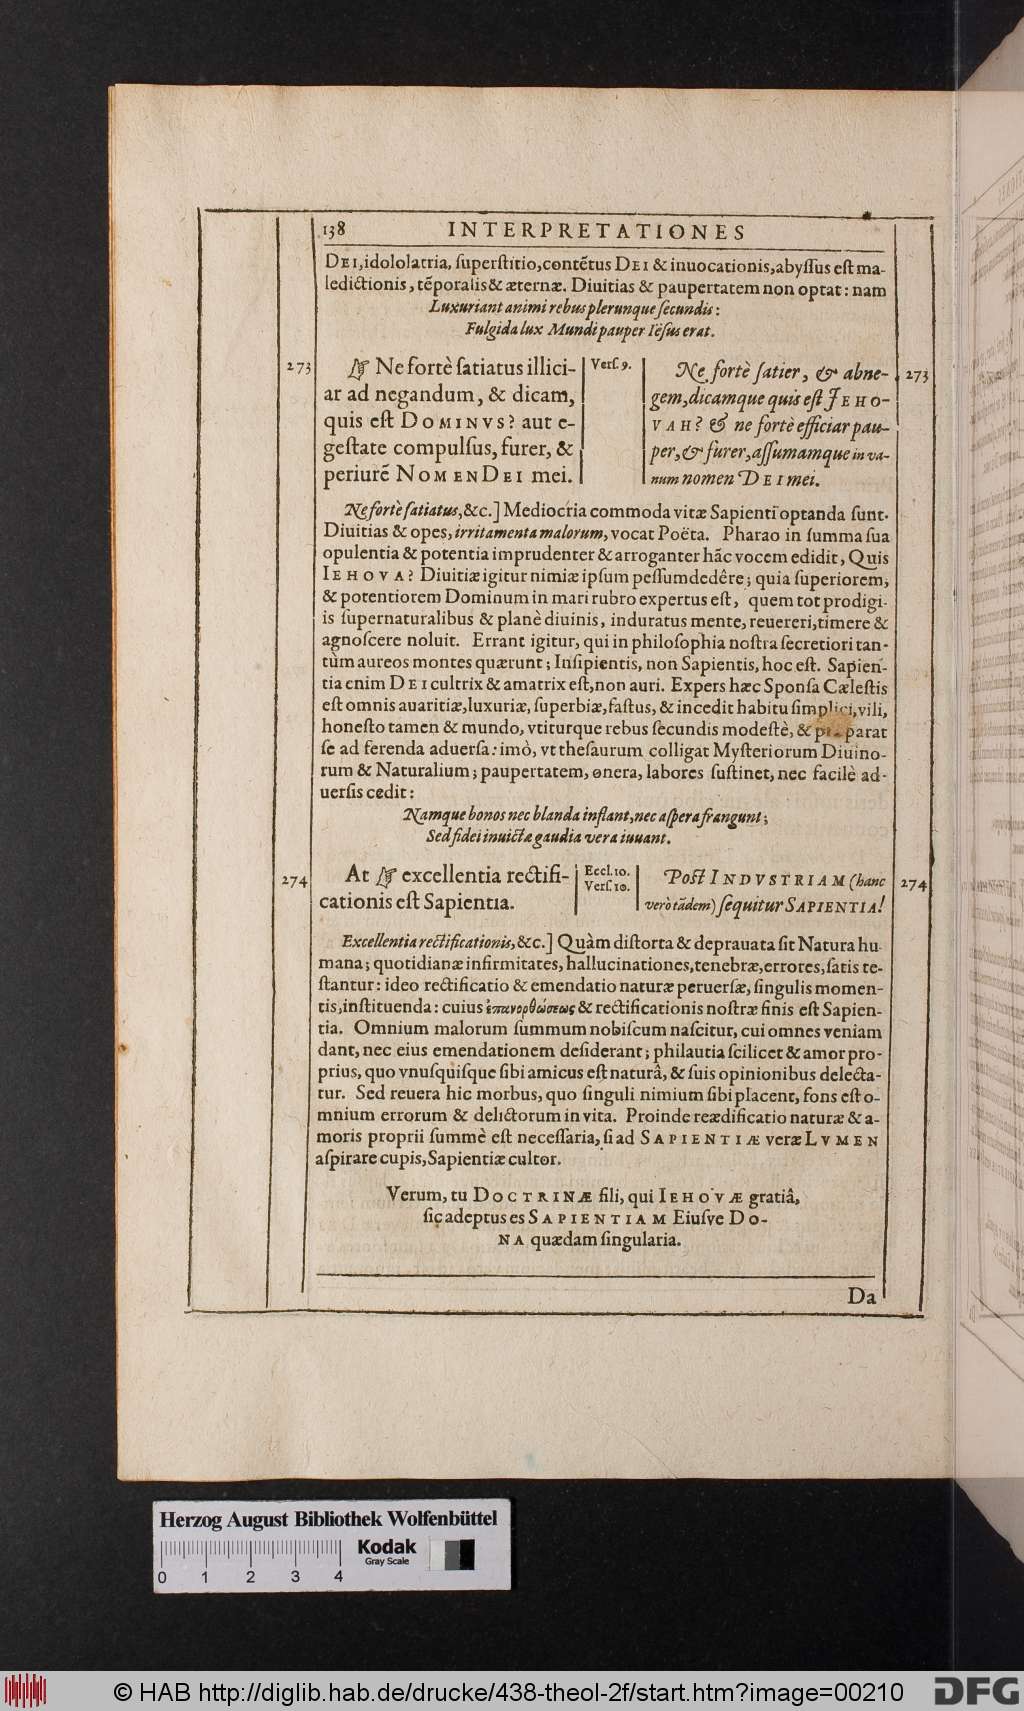 138 INTERPRETATIONES
DEI, idololatria, ſuperſtitio, contẽtus DEI & inuocationis, abyſſus eſt ma-
ledictionis, tẽporalis & æternæ. Diuitias & paupertatem non optat: nam
Luxuriant animi rebus plerunque ſecundis:
Fulgida lux Mundi pauper Iëſus erat.
273
☞ Ne fortè ſatiatus illici-
ar ad negandum, & dicam,
quis eſt DOMINVS? aut e-
geſtate compulſus, furer, &
periurẽ NOMEN DEI mei.
Verſ. 9.
Ne fortè ſatier, & abne-
gem, dicamque quis eſt JEHO-
VAH? & ne fortè efficiar pau-
per, & furer, aſſumamque in va-
num nomen DEI mei.
273
Ne fortè ſatiatus, &c.] Mediocria commoda vitæ Sapienti optanda ſunt.
Diuitias & opes, irritamenta malorum, vocat Poëta. Pharao in ſumma ſua
opulentia & potentia imprudenter & arroganter hãc vocem edidit, Quis
IEHOVA? Diuitiæ igitur nimiæ ipſum peſſumdedêre; quia ſuperiorem,
& potentiorem Dominum in mari rubro expertus eſt, quem tot prodigi-
is ſupernaturalibus & planè diuinis, induratus mente, reuereri, timere &
agnoſcere noluit. Errant igitur, qui in philoſophia noſtra ſecretiori tan-
tùm aureos montes quærunt; Inſipientis, non Sapientis, hoc eſt. Sapien-
tia enim DEI cultrix & amatrix eſt, non auri. Expers hæc Sponſa Cæleſtis
eſt omnis auaritiæ, luxuriæ, ſuperbiæ, faſtus, & incedit habitu ſimplici, vili,
honeſto tamen & mundo, vtiturque rebus ſecundis modeſtè, & præparat
ſe ad ferenda aduerſa: imò, vt theſaurum colligat Myſteriorum Diuino-
rum & Naturalium; paupertatem, onera, labores ſuſtinet, nec facilè ad-
uerſis cedit:
Namque bonos nec blanda inflant, nec aſpera frangunt;
Sed fidei inuictæ gaudia vera iuuant.
274
At ☞ excellentia rectifi-
cationis eſt Sapientia.
Eccl. 10.
Verſ 10.
Poſt INDVSTRIAM (hanc
verò tãdem) ſequitur SAPIENTIA!
274
Excellentia rectificationis, &c.] Quàm diſtorta & deprauata ſit Natura hu-
mana; quotidianæ infirmitates, hallucinationes, tenebræ, errores, ſatis te-
ſtantur: ideo rectificatio & emendatio naturæ peruerſæ, ſingulis momen-
tis, inſtituenda: cuius ἐπανορθώσεως & rectificationis noſtræ finis eſt Sapien-
tia. Omnium malorum ſummum nobiſcum naſcitur, cui omnes veniam
dant, nec eius emendationem deſiderant; philautia ſcilicet & amor pro-
prius, quo vnuſquiſque ſibi amicus eſt naturâ, & ſuis opinionibus delecta-
tur. Sed reuera hic morbus, quo ſinguli nimium ſibi placent, fons eſt o-
mnium errorum & delictorum in vita. Proinde reædificatio naturæ & a-
moris proprii ſummè eſt neceſſaria, ſi ad SAPIENTIÆ veræ LVMEN
aſpirare cupis, Sapientiæ cultor.
Verum, tu DOCTRINÆ fili, qui IEHOVÆ gratiâ,
ſic adeptus es SAPIENTIAM Eiuſve DO-
NA quædam ſingularia.
Da
Herzog August Bibliothek Wolfenbüttel
Kodak
Gray Scale
0 1 2 3 4
© HAB http://diglib.hab.de/drucke/438-theol-2f/start.htm?image=00210
DFG